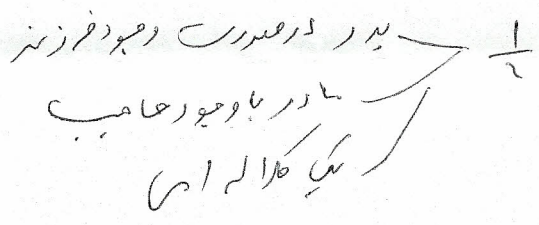 ۱/۶ پدر در صورت وجود فرزند
مادر با وجود حاجب
یک کلاله امی